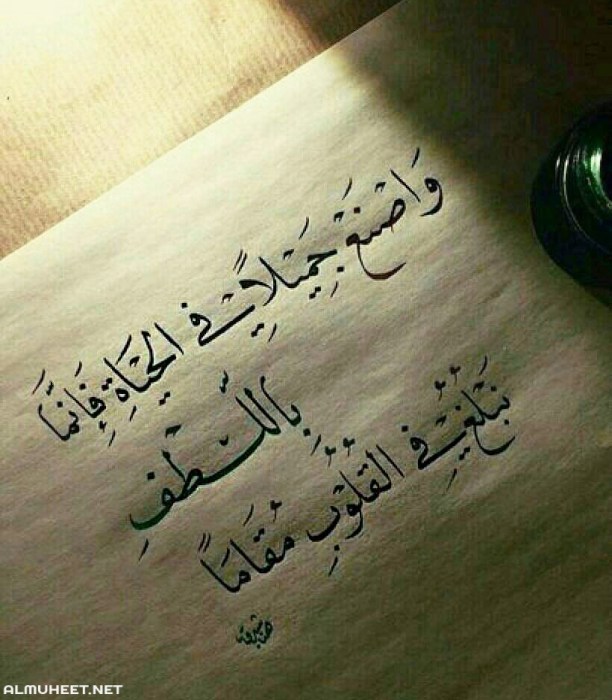 وَاصْنَعْ جَمِيْلًا فِي الْحَيَاةِ فَإِنَّمَا
بِاللُّطْفِ
نَبْلُغُ فِي الْقُلُوْبِ مُقَامَاً
ALMUHEET.NET